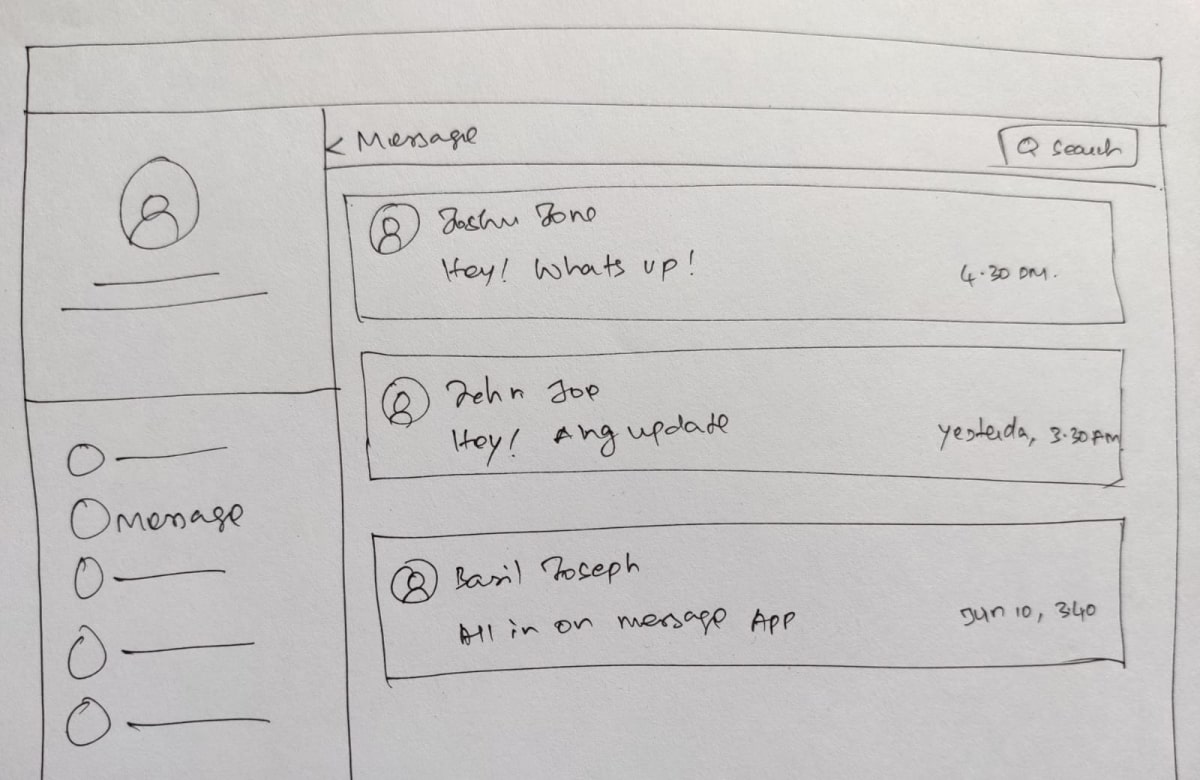 < Message
Search
Joshu Jono
Hey! Whats up!
4.30 PM.
John Joe
Hey! Any update
yesterda, 3.30 PM
Basil Joseph
All in on message App
Jun 10, 340
Message